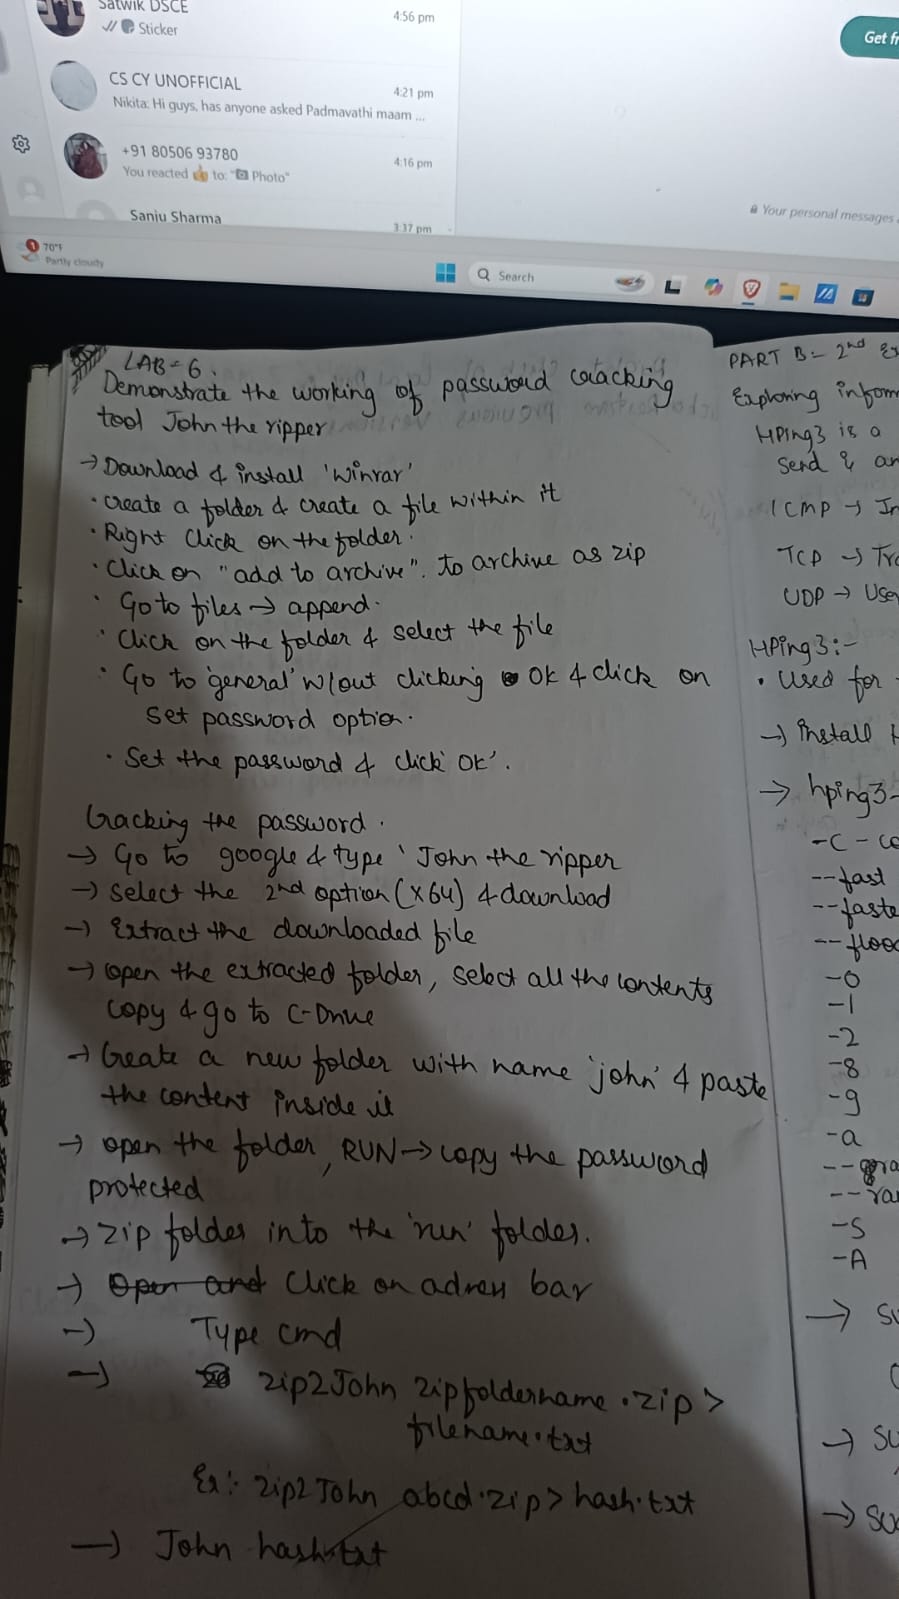 Satwik DSCE
4:56 pm
Sticker
Get fr
CS CY UNOFFICIAL
4:21 pm
Nikita: Hi guys, has anyone asked Padmavathi maam ...
+91 80506 93780
4:16 pm
You reacted 👍 to: "📷 Photo"
Sanju Sharma
3:37 pm
Your personal messages
1
70°F
Partly cloudy
Search
LAB-6.
Demonstrate the working of password cracking
tool John the ripper
→ Download & install 'winrar'
· create a folder & create a file within it
· Right click on the folder.
· Click on "add to archive". to archive as zip
· Go to files → append.
· Click on the folder & select the file
· Go to 'general' w/out clicking OK & click on
set password option.
· Set the password & click 'OK'.
Cracking the password.
→ Go to google & type 'John the ripper
→ select the 2nd option (x64) & download
→ Extract the downloaded file
→ open the extracted folder, select all the contents
copy & go to C-Drive
→ Create a new folder with name 'john' & paste
the content inside it
→ open the folder, RUN → copy the password
protected
→ zip folder into the 'run' folder.
→ Open and Click on adress bar
→ Type cmd
→ zip2John zipfoldername.zip >
filename.txt
Ex: zip2John abcd.zip > hash.txt
→ John hash.txt
PART B:- 2nd Ex
Exploring inform
HPing3 is a
send & an
ICMP → In
TCP → Tra
UDP → User
HPing3:-
· Used for
→ install H
→ hping3-
-c - co
--fast
--faste
--flood
-0
-1
-2
-8
-9
-a
--ra
-S
-A
→ su
→ su
→ su